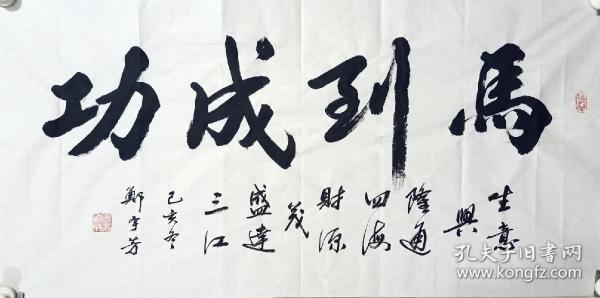 馬到成功
生意
興
隆通
四海
財源
茂
盛達
三江
己亥冬
鄭宇芳
孔夫子旧書网
www.kongfz.com